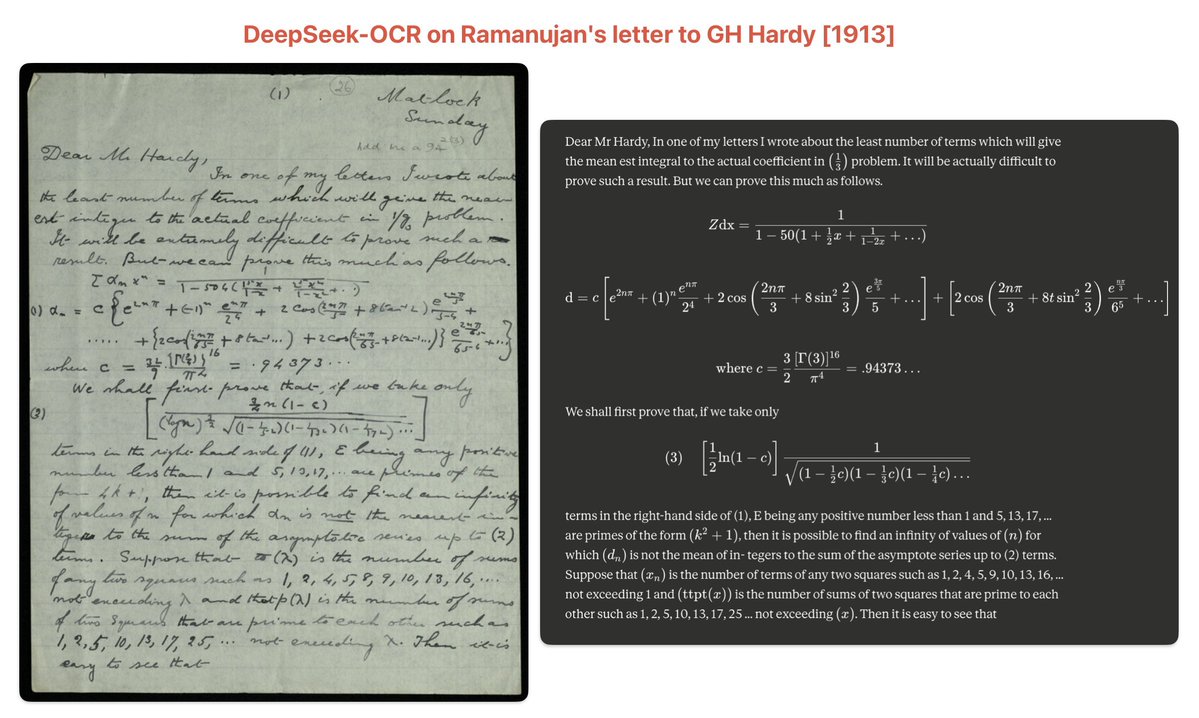 DeepSeek-OCR on Ramanujan's letter to GH Hardy [1913]
(1)
26
Matlock
Sunday
Dear Mr Hardy,
In one of my letters I wrote about
the least number of terms which will give the near-
est integer to the actual coefficient in 1/g3 problem.
It will be extremely difficult to prove such a
result. But we can prove this much as follows.
Σ αn xⁿ =
where c = = .94373...
We shall first prove that, if we take only
terms in the right hand side of (1), E being any positive
number less than 1 and 5, 13, 17, ... are primes of the
form 4k+1, then it is possible to find an infinity
of values of n for which αn is not the nearest in-
teger to the sum of the asymptotic series up to (2)
terms. Suppose that (λ) is the number of sums
of any two squares such as 1, 2, 4, 5, 8, 9, 10, 13, 16, ...
not exceeding λ and that p(λ) is the number of sums
of two squares that are prime to each other such as
1, 2, 5, 10, 13, 17, 25, ... not exceeding λ. Then it is
easy to see that
Dear Mr Hardy, In one of my letters I wrote about the least number of terms which will give
the mean est integral to the actual coefficient in (1/3) problem. It will be actually difficult to
prove such a result. But we can prove this much as follows.
Zdx = 1/(1 − 50(1 + 1/2 x + 1/(1−2x) + ...))
d = c [e^(2nπ) + (1)ⁿ e^(nπ)/2⁴ + 2 cos (2nπ/3 + 8 sin² 2/3) e^(3π/5)/5 + ...] + [2 cos (2nπ/3 + 8t sin² 2/3) e^(nπ/3)/6⁵ + ...]
where c = 3/2 [Γ(3)]¹⁶/π⁴ = .94373...
We shall first prove that, if we take only
(3) [1/2 ln(1 − c)] 1/√((1 − 1/2 c)(1 − 1/3 c)(1 − 1/4 c)...)
terms in the right-hand side of (1), E being any positive number less than 1 and 5, 13, 17, ...
are primes of the form (k² + 1), then it is possible to find an infinity of values of (n) for
which (dₙ) is not the mean of in- tegers to the sum of the asymptote series up to (2) terms.
Suppose that (xₙ) is the number of terms of any two squares such as 1, 2, 4, 5, 9, 10, 13, 16, ...
not exceeding 1 and (ttpt(x)) is the number of sums of two squares that are prime to each
other such as 1, 2, 5, 10, 13, 17, 25 ... not exceeding (x). Then it is easy to see that